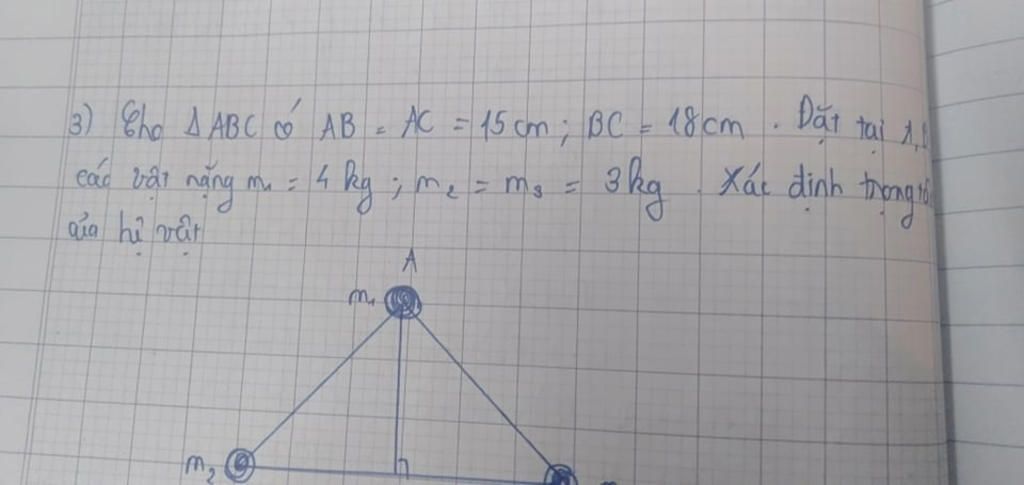 3) Cho Δ ABC có AB = AC = 15 cm ; BC = 18 cm . Đặt tại A,
các vật nặng m₁ = 4 kg ; m₂ = m₃ = 3 kg . Xác định trọng
của hệ vật
A
m₁
m₂